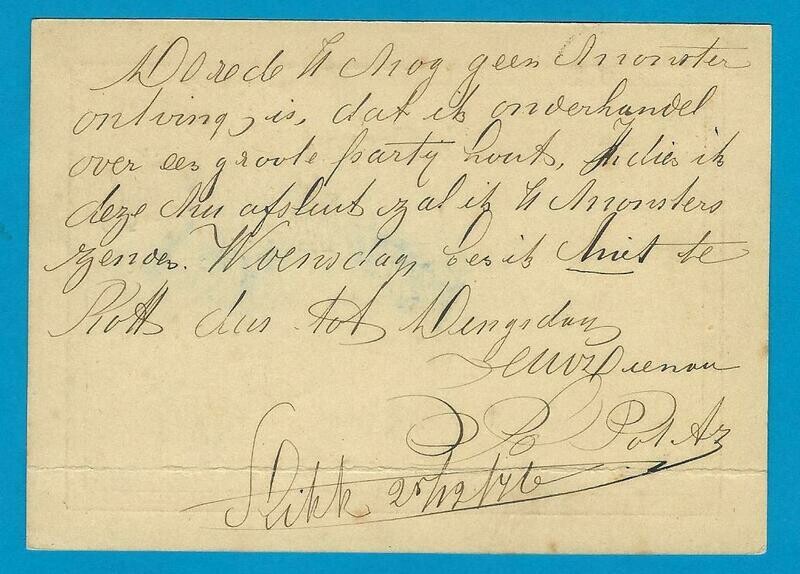 De rede U nog geen monster
ontving is, dat ik onderhandel
over een groote party hout, Indien ik
deze nu afsluit zal ik U monsters
zenden. Woensdag ben ik niet te
Rott dus tot Dingsdag
UwDienaar
P Pot Az
Slikk 25/12/76